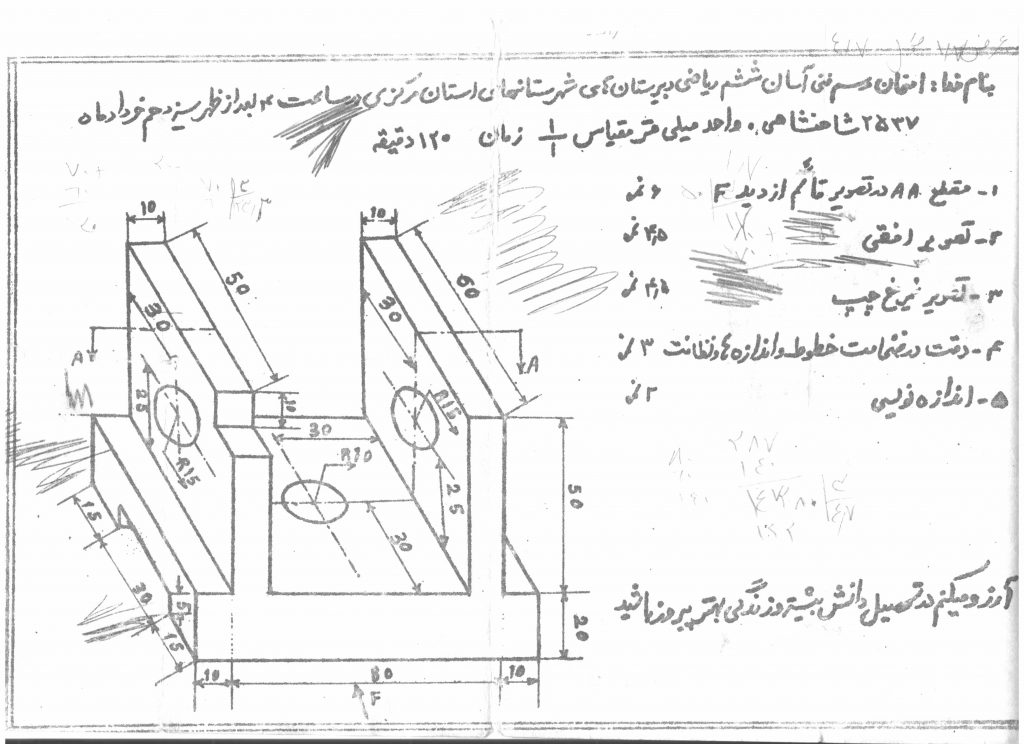 بنام خدا: امتحان رسم فنی آسان ششم ریاضی دبیرستان های شهرستانهای استان مرکزی در ساعت ۴ بعد از ظهر سیزدهم خرداد ماه
۲۵۳۷ شاهنشاهی. واحد میلی متر مقیاس ۱/۱ زمان ۱۲۰ دقیقه
۱- مقطع AA در تصویر قائم از دید F ۶ نمره
۲- تصویر افقی ۴٫۵ نمره
۳- تصویر نیمرخ چپ ۴٫۵ نمره
۴- دقت در ضخامت خطوط و اندازه ها و نظافت ۳ نمره
۵- اندازه نویسی ۲ نمره
10
10
50
60
30
30
A
A
25
R15
R15
10
30
R10
25
50
30
15
30
15
5
20
10
80
10
F
آرزو میکنم در تحصیل دانش بیشتر و زندگی بهتر پیروز باشید